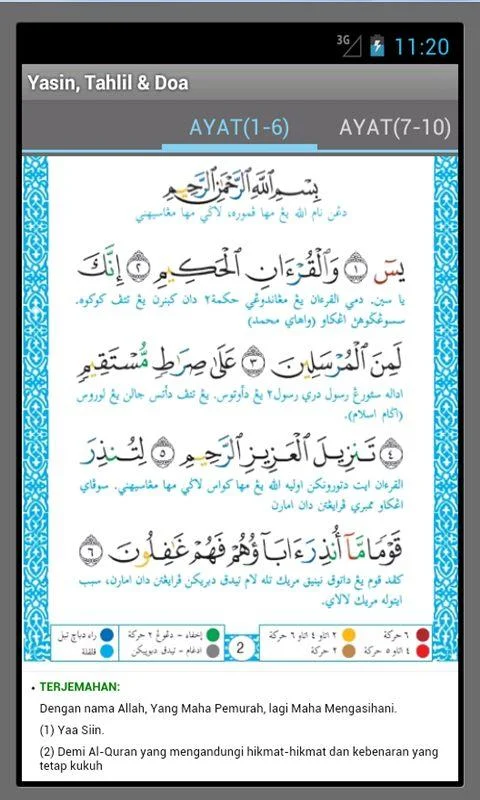 3G 11:20
Yasin, Tahlil & Doa
AYAT(1-6) AYAT(7-10)
بِسْمِ اللَّهِ الرَّحْمَٰنِ الرَّحِيمِ
دڠن نام الله يڠ مها ڤموره، لاݢي مها مڠاسيهني
يسٓ ١ وَالْقُرْءَانِ الْحَكِيمِ ٢ إِنَّكَ
يا سين. دمي القرءان يڠ مڠاندوڠي حكمة٢ دان كبنرن يڠ تتڤ كوكوه.
سسوڠݢوهڽ اڠكاو (واهاي محمد)
لَمِنَ الْمُرْسَلِينَ ٣ عَلَىٰ صِرَاطٍ مُّسْتَقِيمٍ
اداله سئورڠ رسول دري رسول٢ يڠ دأوتوس. يڠ تتڤ دأتس جالن يڠ لوروس
(اݢام اسلام).
٤ تَنزِيلَ الْعَزِيزِ الرَّحِيمِ ٥ لِتُنذِرَ
القرءان ايت دتورونكن اوليه الله يڠ مها كواس لاݢي مها مڠاسيهني. سوڤاي
اڠكاو ممبري ڤريڠتن دان امارن
قَوْمًا مَّآ أُنذِرَ ءَابَآؤُهُمْ فَهُمْ غَٰفِلُونَ ٦
كڤد قوم يڠ داتوق نينيق مريك تله لام تيدق دبريكن ڤريڠتن دان امارن، سبب
ايتوله مريك لالاي.
٦ حركة ٢ اتاو ٤ اتاو ٦ حركة إخفاء - دڠوڠ ٢ حركة راء دباچ تبل
٤ اتاو ٥ حركة ٢ حركة ادغام - تيدق دبوڽيكن قلقلة
2
• TERJEMAHAN:
Dengan nama Allah, Yang Maha Pemurah, lagi Maha Mengasihani.
(1) Yaa Siin.
(2) Demi Al-Quran yang mengandungi hikmat-hikmat dan kebenaran yang
tetap kukuh